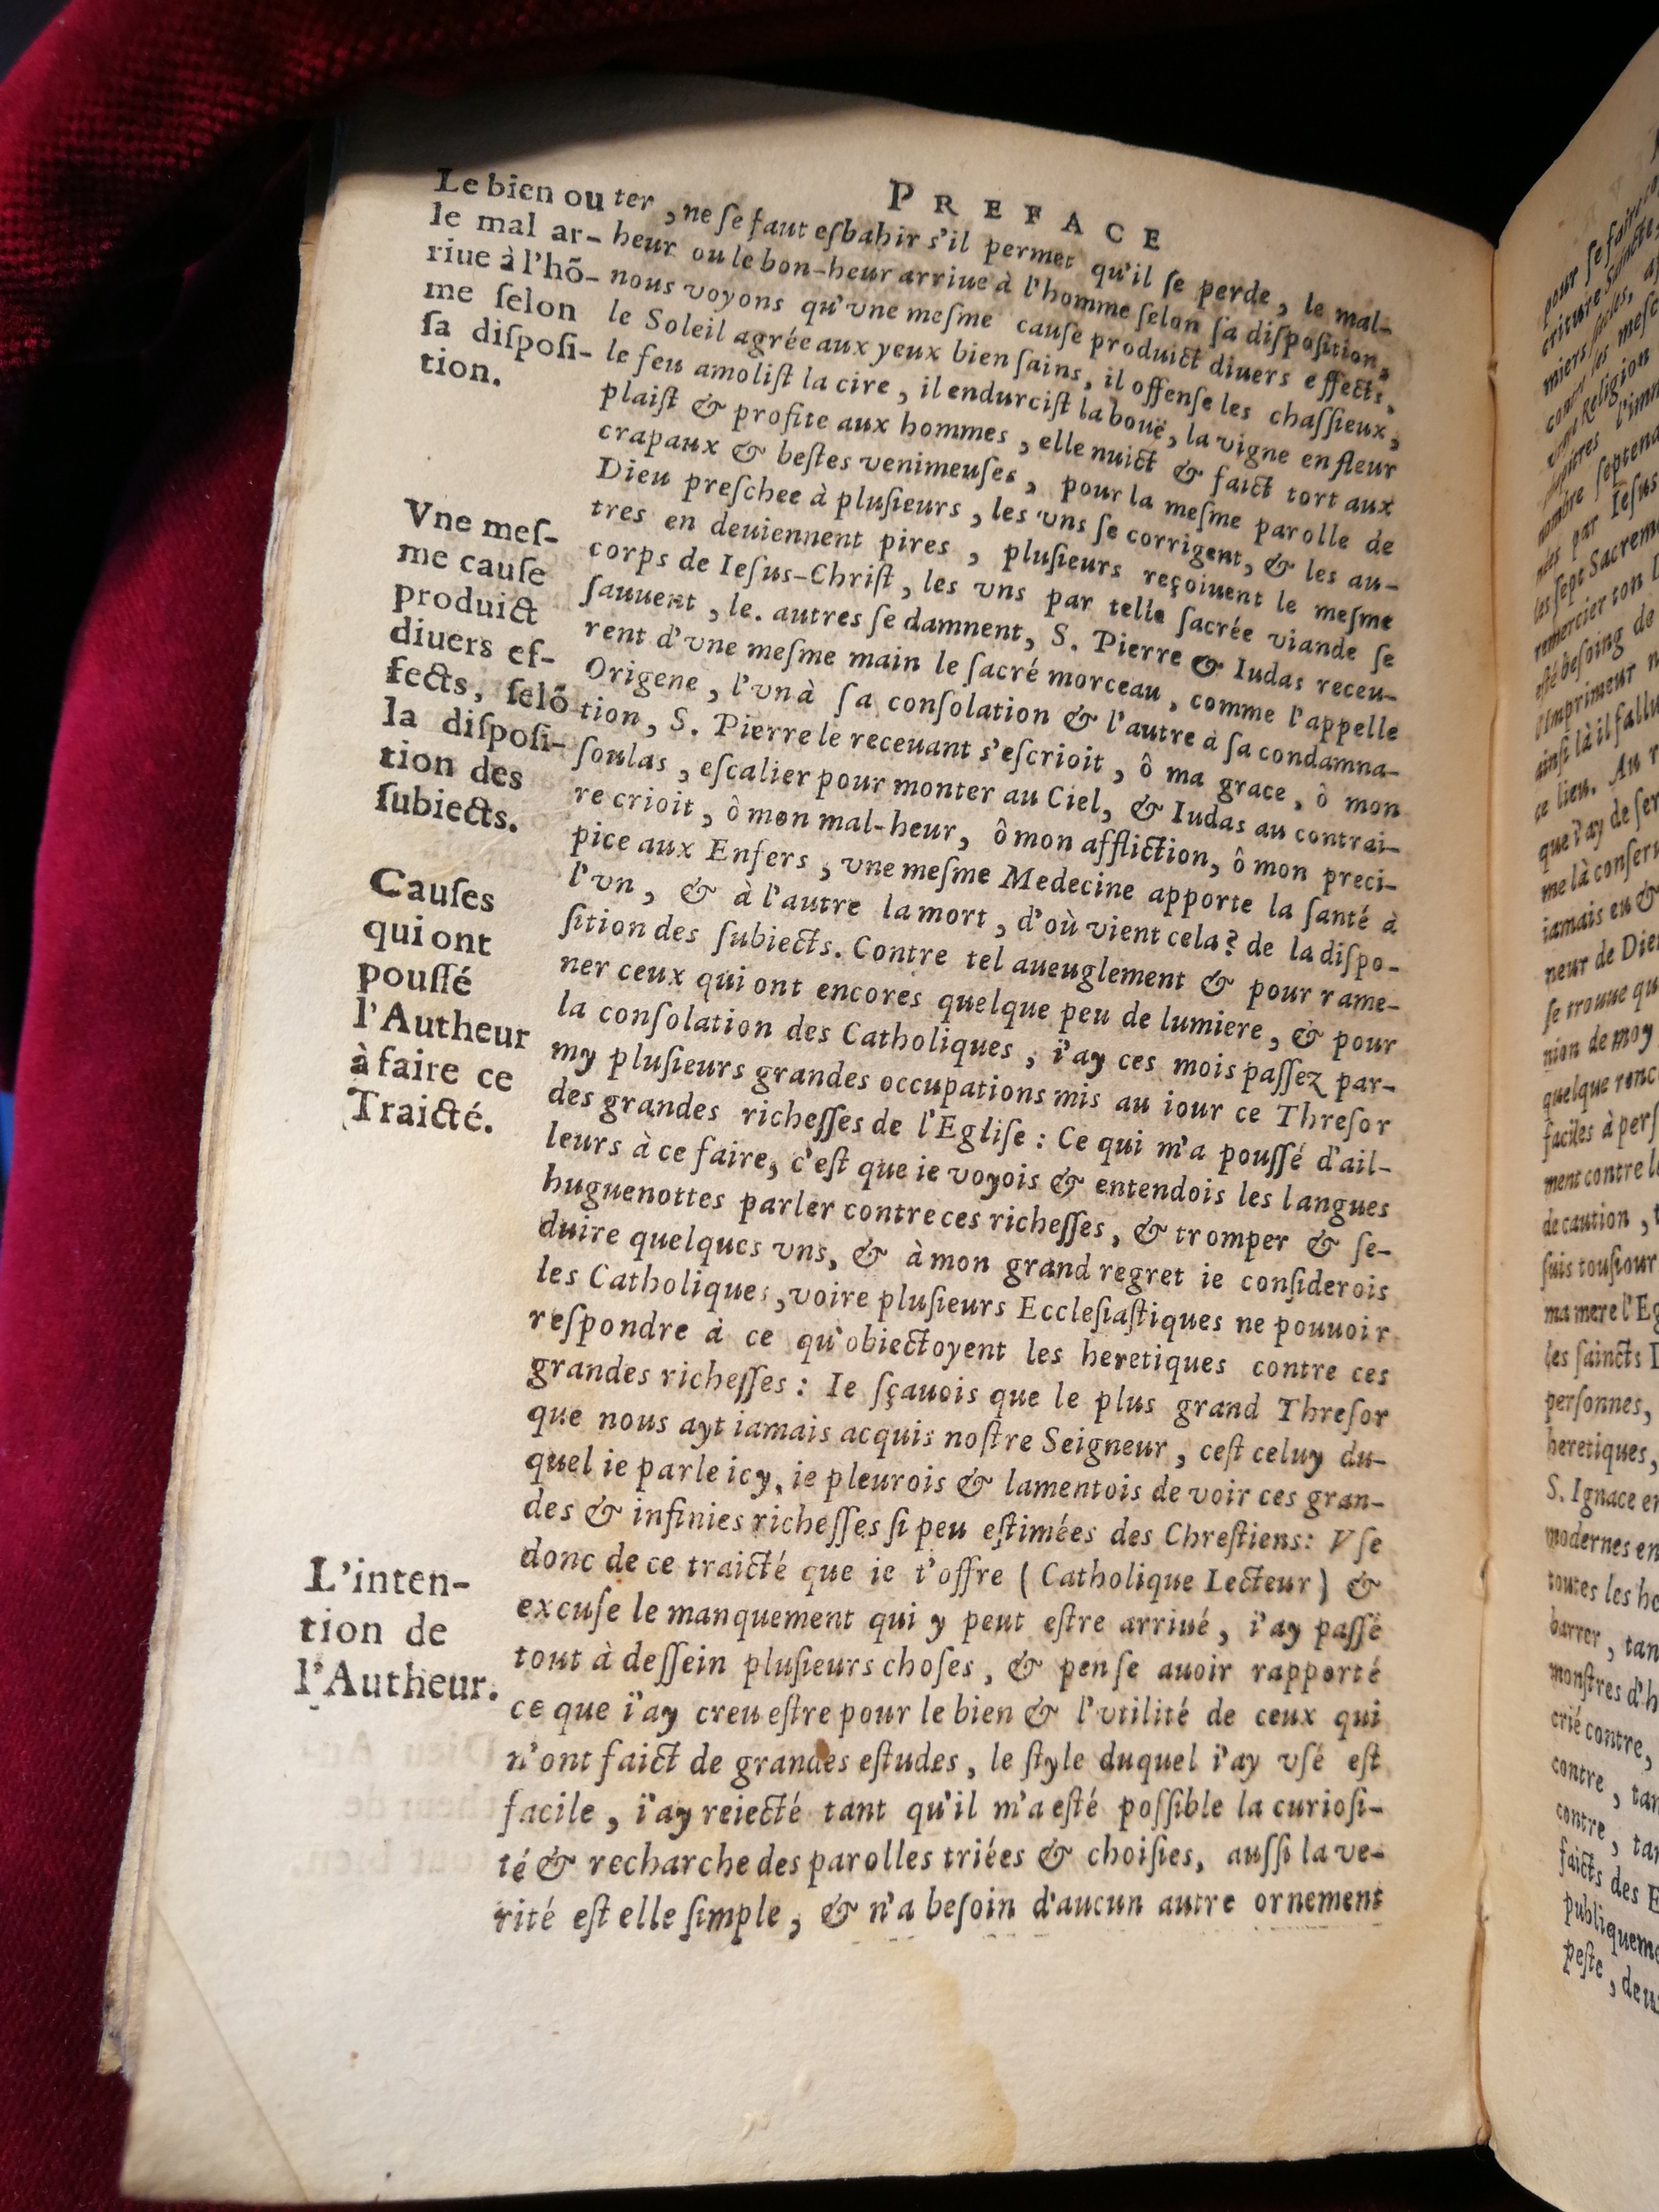 PREFACE
Le bien ou
le mal ar-
riue à l'hõ-
me ſelon
ſa diſpoſi-
tion.
ter, ne ſe faut eſbahir s'il permet qu'il ſe perde, le mal-
heur ou le bon-heur arriue à l'homme ſelon ſa diſpoſition,
nous voyons qu'vne meſme cauſe produict diuers effects,
le Soleil agrée aux yeux bien ſains, il offenſe les chaſſieux,
le feu amoliſt la cire, il endurciſt la bouë, la vigne en fleur
plaiſt & profite aux hommes, elle nuict & faict tort aux
crapaux & beſtes venimeuſes, pour la meſme parolle de
Dieu preſchee à pluſieurs, les vns ſe corrigent, & les au-
tres en deuiennent pires, pluſieurs reçoiuent le meſme
corps de Ieſus-Chriſt, les vns par telle ſacrée viande ſe
ſauuent, le. autres ſe damnent, S. Pierre & Iudas receu-
rent d'vne meſme main le ſacré morceau, comme l'appelle
Origene, l'vn à ſa conſolation & l'autre à ſa condamna-
tion, S. Pierre le receuant s'eſcrioit, ô ma grace, ô mon
ſoulas, eſcalier pour monter au Ciel, & Iudas au contrai-
re crioit, ô mon mal-heur, ô mon affliction, ô mon preci-
pice aux Enfers, vne meſme Medecine apporte la ſanté à
l'vn, & à l'autre la mort, d'où vient cela? de la diſpo-
ſition des ſubiects. Contre tel aueuglement & pour rame-
ner ceux qui ont encores quelque peu de lumiere, & pour
la conſolation des Catholiques, i'ay ces mois paſſez par-
my pluſieurs grandes occupations mis au iour ce Threſor
des grandes richeſſes de l'Egliſe: Ce qui m'a pouſſé d'ail-
leurs à ce faire, c'eſt que ie voyois & entendois les langues
huguenottes parler contre ces richeſſes, & tromper & ſe-
duire quelques vns, & à mon grand regret ie conſiderois
les Catholiques, voire pluſieurs Eccleſiaſtiques ne pouuoir
reſpondre à ce qu'obiectoyent les heretiques contre ces
grandes richeſſes: Ie ſçauois que le plus grand Threſor
que nous ayt iamais acquis noſtre Seigneur, ceſt celuy du-
quel ie parle icy, ie pleurois & lamentois de voir ces gran-
des & infinies richeſſes ſi peu eſtimées des Chreſtiens: Vſe
donc de ce traicté que ie t'offre (Catholique Lecteur) &
excuſe le manquement qui y peut eſtre arriué, i'ay paſſé
tout à deſſein pluſieurs choſes, & penſe auoir rapporté
ce que i'ay creu eſtre pour le bien & l'vtilité de ceux qui
n'ont faict de grandes eſtudes, le ſtyle duquel i'ay vſé eſt
facile, i'ay reiecté tant qu'il m'a eſté poſſible la curioſi-
té & recharche des parolles triées & choiſies, auſſi la ve-
rité eſt elle ſimple, & n'a beſoin d'aucun autre ornement
Vne meſ-
me cauſe
produict
diuers ef-
fects, ſelõ
la diſpoſi-
tion des
ſubiects.
Cauſes
qui ont
pouſſé
l'Autheur
à faire ce
Traicté.
L'inten-
tion de
l'Autheur.
pour ſe faire
miers
nombre
par Ieſus
les ſept Sacrem
remercier ton
eſté beſoing de
l'Imprimeur
ainſi là il fallu
ce lieu. Au
que i'ay de ſer
me là conſeru
iamais eu &
neur de Dieu
ſe trouue qu
nion de moy
quelque
faciles à
ment contre
de caution,
ſuis touſiour
ma mere l'Eg
les ſaincts
perſonnes,
heretiques,
S. Ignace
modernes en
toutes les ho
barrer, tan
monſtres d'h
crié contre,
contre, tan
contre, tan
faicts des E
publiqueme
peſte, deu